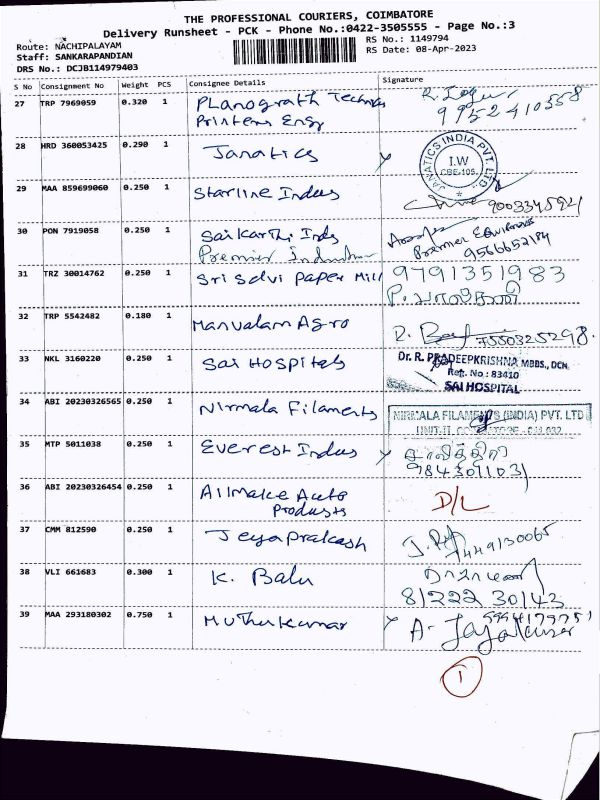 THE PROFESSIONAL COURIERS, COIMBATORE
Delivery Runsheet - PCK - Phone No.:0422-3505555 - Page No.:3
Route: NACHIPALAYAM
RS No.: 1149794
Staff: SANKARAPANDIAN
RS Date: 08-Apr-2023
DRS No.: DCJB114979403
S No Consignment No Weight PCS Consignee Details Signature
27 TRP 7969059 0.320 1 Planograth Technics
Printers Engg
9952410558
28 HRD 360053425 0.290 1 Janatics
JANATICS INDIA PVT. LTD
I.W
CBE-105.
29 MAA 859699060 0.250 1 Starline Indus
30 PON 7919058 0.250 1 Sai Karthi Inds
Premier Industries
9566652184
31 TRZ 30014762 0.250 1 Sri Selvi Paper Mill 9791351983
32 TRP 5542482 0.180 1 Manvalam Agro 7550325298.
33 NKL 3160220 0.250 1 Sai Hospitals Dr. R. PRADEEPKRISHNA MBBS., DCH,
Reg. No : 83410
SAI HOSPITAL
34 ABI 20230326565 0.250 1 Nirmala Filaments NIRMALA FILAMENTS (INDIA) PVT. LTD
35 MTP 5011038 0.250 1 Everest Indus
9843011031
36 ABI 20230326454 0.250 1 Allmake Auto D/L
Products
37 CMM 812590 0.250 1 Jeyaprakash 9449130065
38 VLI 661683 0.300 1 K. Balu
81222 30143
39 MAA 293180302 0.750 1 Muthukumar A. Jayakumar
1